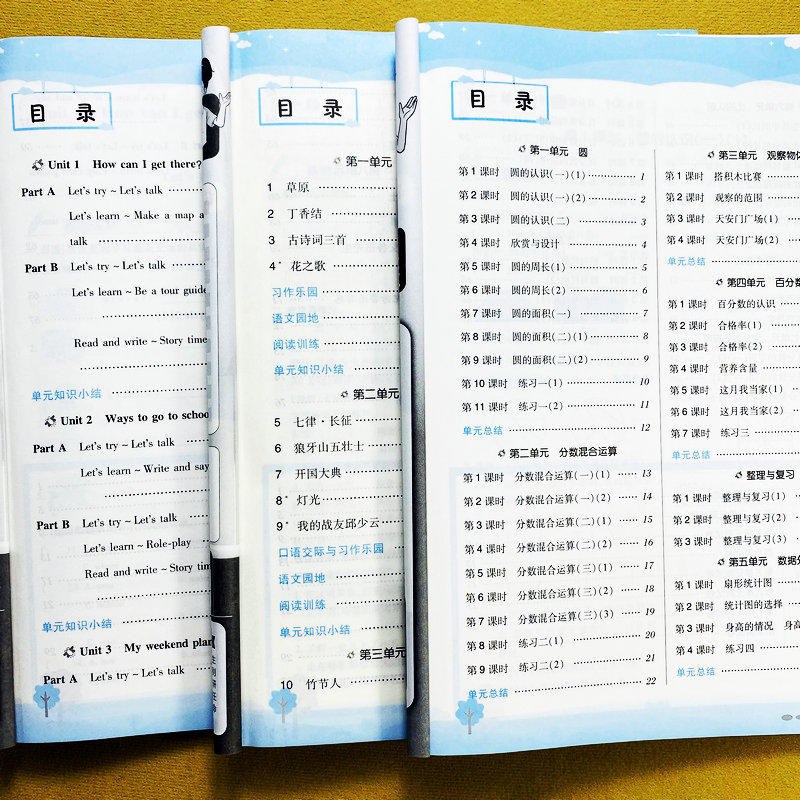 目 录
Unit 1 How can I get there?
Part A Let's try ~ Let's talk
Let's learn ~ Make a map a
talk
Part B Let's try ~ Let's talk
Let's learn ~ Be a tour guide
Read and write ~ Story time
单元知识小结
Unit 2 Ways to go to schoo
Part A Let's try ~ Let's talk
Let's learn ~ Write and say
Part B Let's try ~ Let's talk
Let's learn ~ Role-play
Read and write ~ Story time
单元知识小结
Unit 3 My weekend plan
Part A Let's try ~ Let's talk
目 录
第一单元
1 草原
2 丁香结
3 古诗词三首
4* 花之歌
习作乐园
语文园地
阅读训练
单元知识小结
第二单元
5 七律·长征
6 狼牙山五壮士
7 开国大典
8* 灯光
9* 我的战友邱少云
口语交际与习作乐园
语文园地
阅读训练
单元知识小结
第三单元
10 竹节人
目 录
第一单元 圆
第1课时 圆的认识(一)(1) 1
第2课时 圆的认识(一)(2) 2
第3课时 圆的认识(二) 3
第4课时 欣赏与设计 4
第5课时 圆的周长(1) 5
第6课时 圆的周长(2) 6
第7课时 圆的面积(一) 7
第8课时 圆的面积(二)(1) 8
第9课时 圆的面积(二)(2) 9
第10课时 练习一(1) 10
第11课时 练习一(2) 11
单元总结 12
第二单元 分数混合运算
第1课时 分数混合运算(一)(1) 13
第2课时 分数混合运算(一)(2) 14
第3课时 分数混合运算(二)(1) 15
第4课时 分数混合运算(二)(2) 16
第5课时 分数混合运算(三)(1) 17
第6课时 分数混合运算(三)(2) 18
第7课时 分数混合运算(三)(3) 19
第8课时 练习二(1) 20
第9课时 练习二(2) 21
单元总结 22
第三单元 观察物体
第1课时 搭积木比赛
第2课时 观察的范围
第3课时 天安门广场(1)
第4课时 天安门广场(2)
单元总结
第四单元 百分数
第1课时 百分数的认识
第2课时 合格率(1)
第3课时 合格率(2)
第4课时 营养含量
第5课时 这月我当家(1)
第6课时 这月我当家(2)
第7课时 练习三
单元总结
整理与复习
第1课时 整理与复习(1)
第2课时 整理与复习(2)
第3课时 整理与复习(3)
第五单元 数据分
第1课时 扇形统计图
第2课时 统计图的选择
第3课时 身高的情况 身高
第4课时 练习四
单元总结